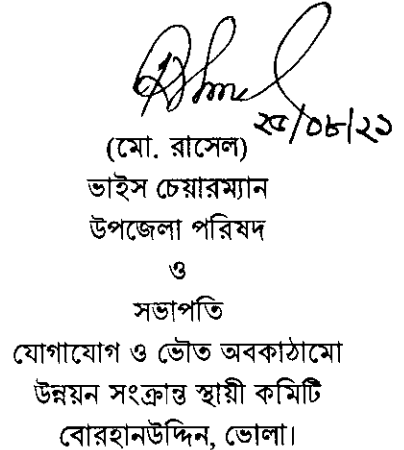 ২৫/০৮/২১
(মো. রাসেল)
ভাইস চেয়ারম্যান
উপজেলা পরিষদ
ও
সভাপতি
যোগাযোগ ও ভৌত অবকাঠামো
উন্নয়ন সংক্রান্ত স্থায়ী কমিটি
বোরহানউদ্দিন, ভোলা।